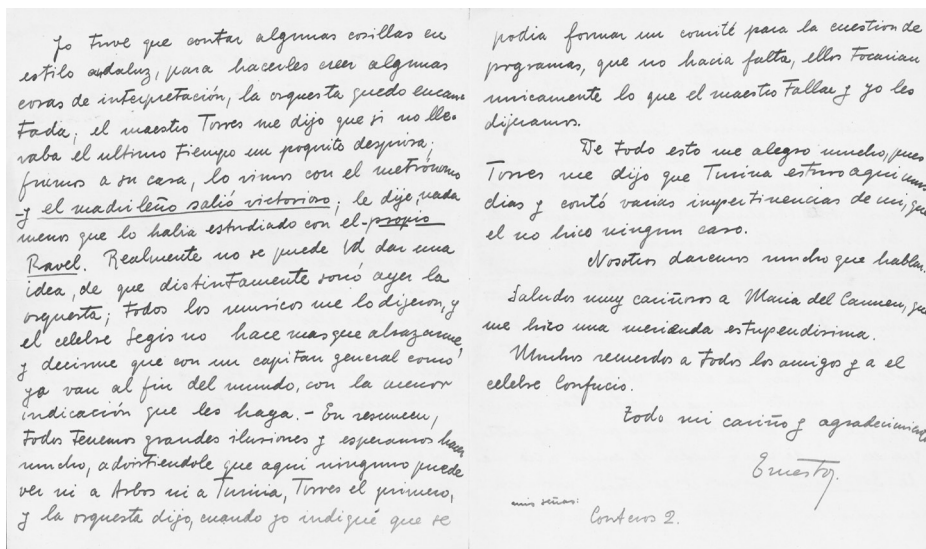 Yo tuve que contar algunas cosillas en
estilo andaluz, para hacerles creer algunas
cosas de interpretación, la orquesta quedo encan-
tada; el maestro Torres me dijo que si no lle-
vaba el ultimo tiempo un poquito desprisa;
fuimos a su casa, lo vimos con el metrónomo
y el madrileño salió victorioso; le dije, nada
menos que lo habia estudiado con el propio
Ravel. Realmente no se puede Vd dar una
idea, de que distintamente sonó ayer la
orquesta; todos los musicos me lo dijeron, y
el celebre Segis no hace mas que abrazarme,
y decirme que con un capitan general como
yo van al fin del mundo, con la menor
indicación que les haga. - En resumen,
todos tenemos grandes ilusiones y esperamos hacer
mucho, advirtiendole que aqui ninguno puede
ver ni a Arbos ni a Turina, Torres el primero,
y la orquesta dijo, cuando yo indiqué que se
podia formar un comité para la cuestion de
programas, que no hacia falta, ellos tocarian
unicamente lo que el maestro Falla y yo les
dijeramos.
De todo esto me alegro mucho, pues
Torres me dijo que Turina estuvo aqui unos
dias y contó varias impertinencias de mi, que
el no hico ningun caso.
Nosotros daremos mucho que hablar.
Saludos muy cariñosos a Maria del Carmen, que
me hico una merienda estupendisima.
Muchos recuerdos a todos los amigos y a el
celebre Confucio.
Todo mi cariño y agradecimiento
Ernesto.
mis señas:
Conteros 2.